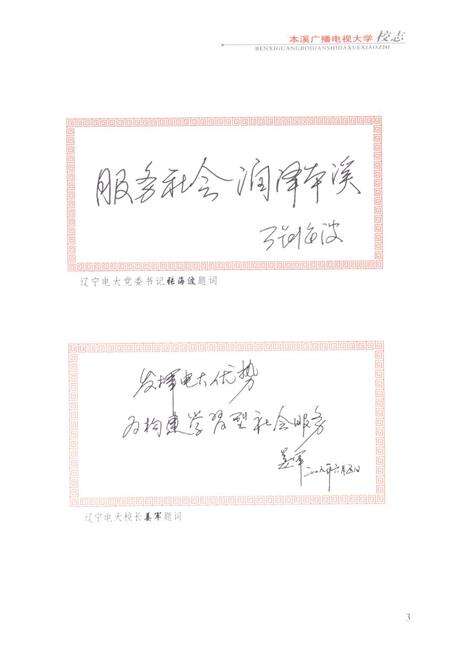 本溪广播电视大学 校志
BENXIGUANGBODIANSHIDAXUEXIAOZHI
服务社会 润泽本溪
张海波
辽宁电大党委书记张海波题词
发挥电大优势
为构建学习型社会服务
姜军
二〇〇八年六月五日
辽宁电大校长姜军题词
3